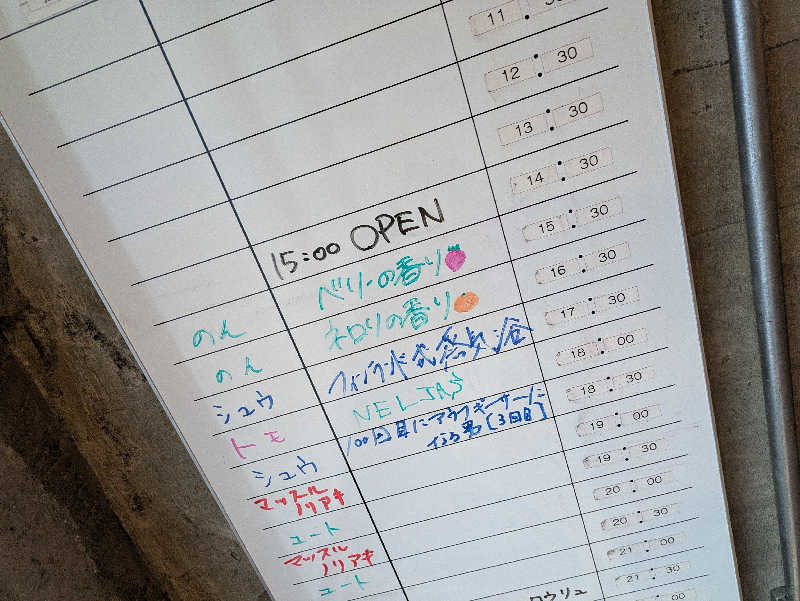 11 : 30
12 : 30
13 : 30
14 : 30
15:00 OPEN
15 : 30
のん ベリーの香り
16 : 30
のん ネロリの香り
17 : 30
シュウ
18 : 00
トモ NELJÄS
18 : 30
シュウ 100回目にアウフギーサーに
[3回目]
19 : 00
マッスル
ノリアキ
19 : 30
ユート
20 : 00
マッスル
ノリアキ
20 : 30
ユート
21 : 00
21 : 30
ロウリュ
00